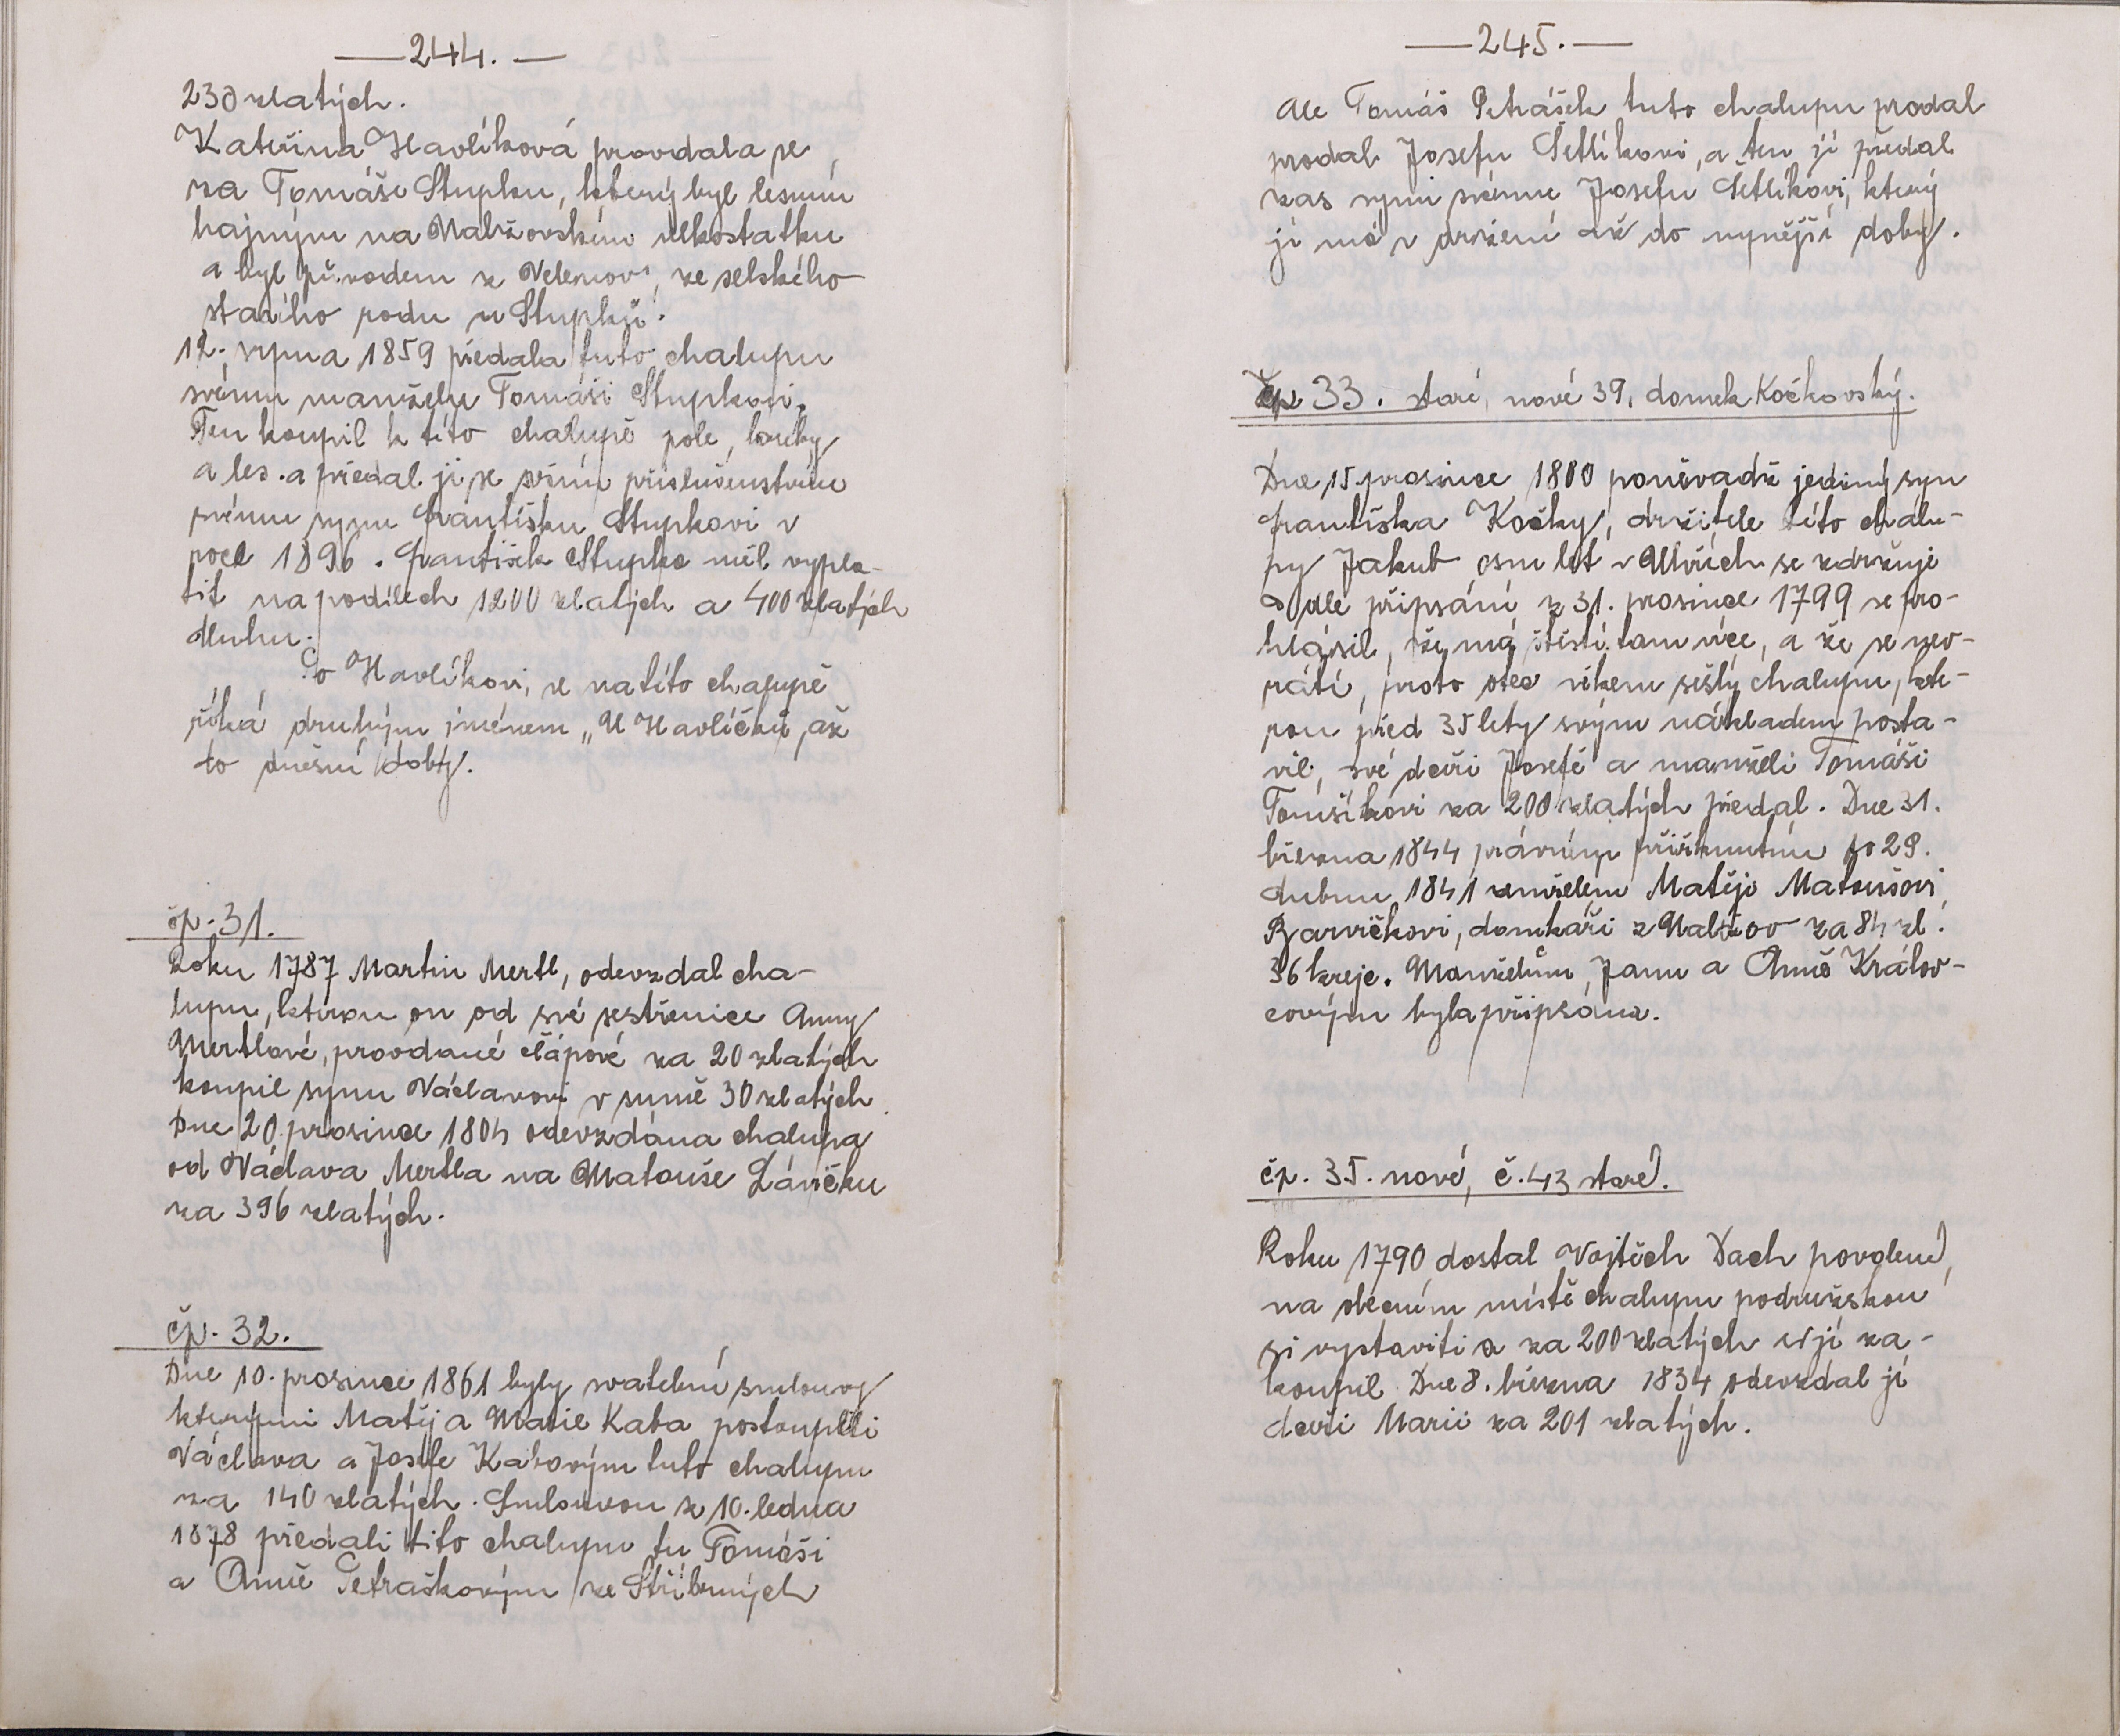 —244.—
230 zlatých.
Kateřina Havlíková provdala se
za Tomáše Stupku, který byl lesním
hajným na Nalžovském velkostatku
a byl původem z Velenov, ze selského
starího rodu u Stupků.
12. srpna 1859 předala tuto chalupu
svému manželu Tomáši Stupkovi.
Ten koupil k této chalupě pole, louky
a les. a předal ji se vším příslušenstvím
svému synu Františku Stupkovi v
roce 1896. František Stupka měl vypla-
tit na podílech 1200 zlatých a 400 zlatých
dluhu.
Po Havlíkovi, se na této chalupě
říká druhým jménem „U Havlíčků, až
to dnešní doby.
čp. 31.
Roku 1787 Martin Mertl, odevzdal cha-
lupu, kterou on od své sestřenice Anny
Mertlové, provdané Čápové za 20 zlatých
koupil synu Václavovi v sumě 30 zlatých
Dne 20. prosince 1804 odevzdána chalupa
od Václava Mertla na Matouše Lávičku
za 396 zlatých.
čp. 32.
Dne 10. prosince 1861 byly svatební smlouvy
kterými Matěj a Marie Kaba postoupili
Václava a Josefe Kabovým tuto chalupu
za 140 zlatých. Smlouvou z 10. ledna
1878 předali tito chalupu tu Tomáši
a Anně Petraškovým ze Stříbrných
—245.—
Ale Tomáš Petrášek tuto chalupu prodal
prodal Josefu Šetlíkovi, a ten ji předal
zas synu svému Josefu Šetlíkovi, který
ji má v držení až do nynější doby.
Čp 33. staré, nové 39, domek Kočkovský.
Dne 15. prosince 1800 poněvadž jediný syn
Františka Kočky, držitele této chalu-
py Jakub osm let v Uhrích se zdržuje
a dle připsání z 31. prosince 1799 se pro-
hlásil, že má štěstí tam více, a že se nev-
rátí, proto otec věkem sešlý chalupu, kte-
rou před 35 lety svým nákladem posta-
vil, své dceři Josefě a manželi Tomáši
Tomšíkovi za 200 zlatých předal. Dne 31.
března 1844 právním přiřknutím po 29.
dubnu 1841 zemřelém Matěje Matoušovi
Barvičkovi, domkáři z Nalžov za 84 zl.
36 kreje. Manželům, Janu a Anně Králov-
covým byla připsána.
čp. 35. nové, č. 43 staré.
Roku 1790 dostal Vojtěch Dach povolení,
na obecním místě chalupu podružskou
si vystaviti a za 200 zlatých si ji za-
koupil Dne 8. března 1834 odevzdal ji
dceři Marii za 201 zlatých.